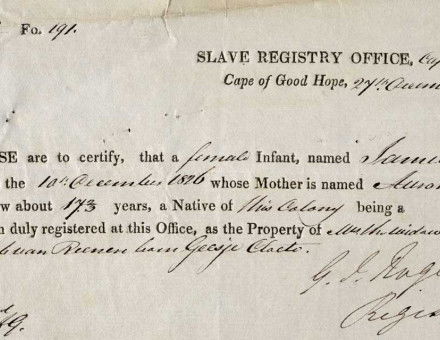 Fo. 191.
SLAVE REGISTRY OFFICE, Cap
Cape of Good Hope, 27th Decem
SE are to certify, that a female Infant, named
the 10th December 1826 whose Mother is named
w about 173 years, a Native of this Colony being a
n duly registered at this Office, as the Property of the widow
van Reenen born Geesje Cloete.
G. J. Rog
Regis